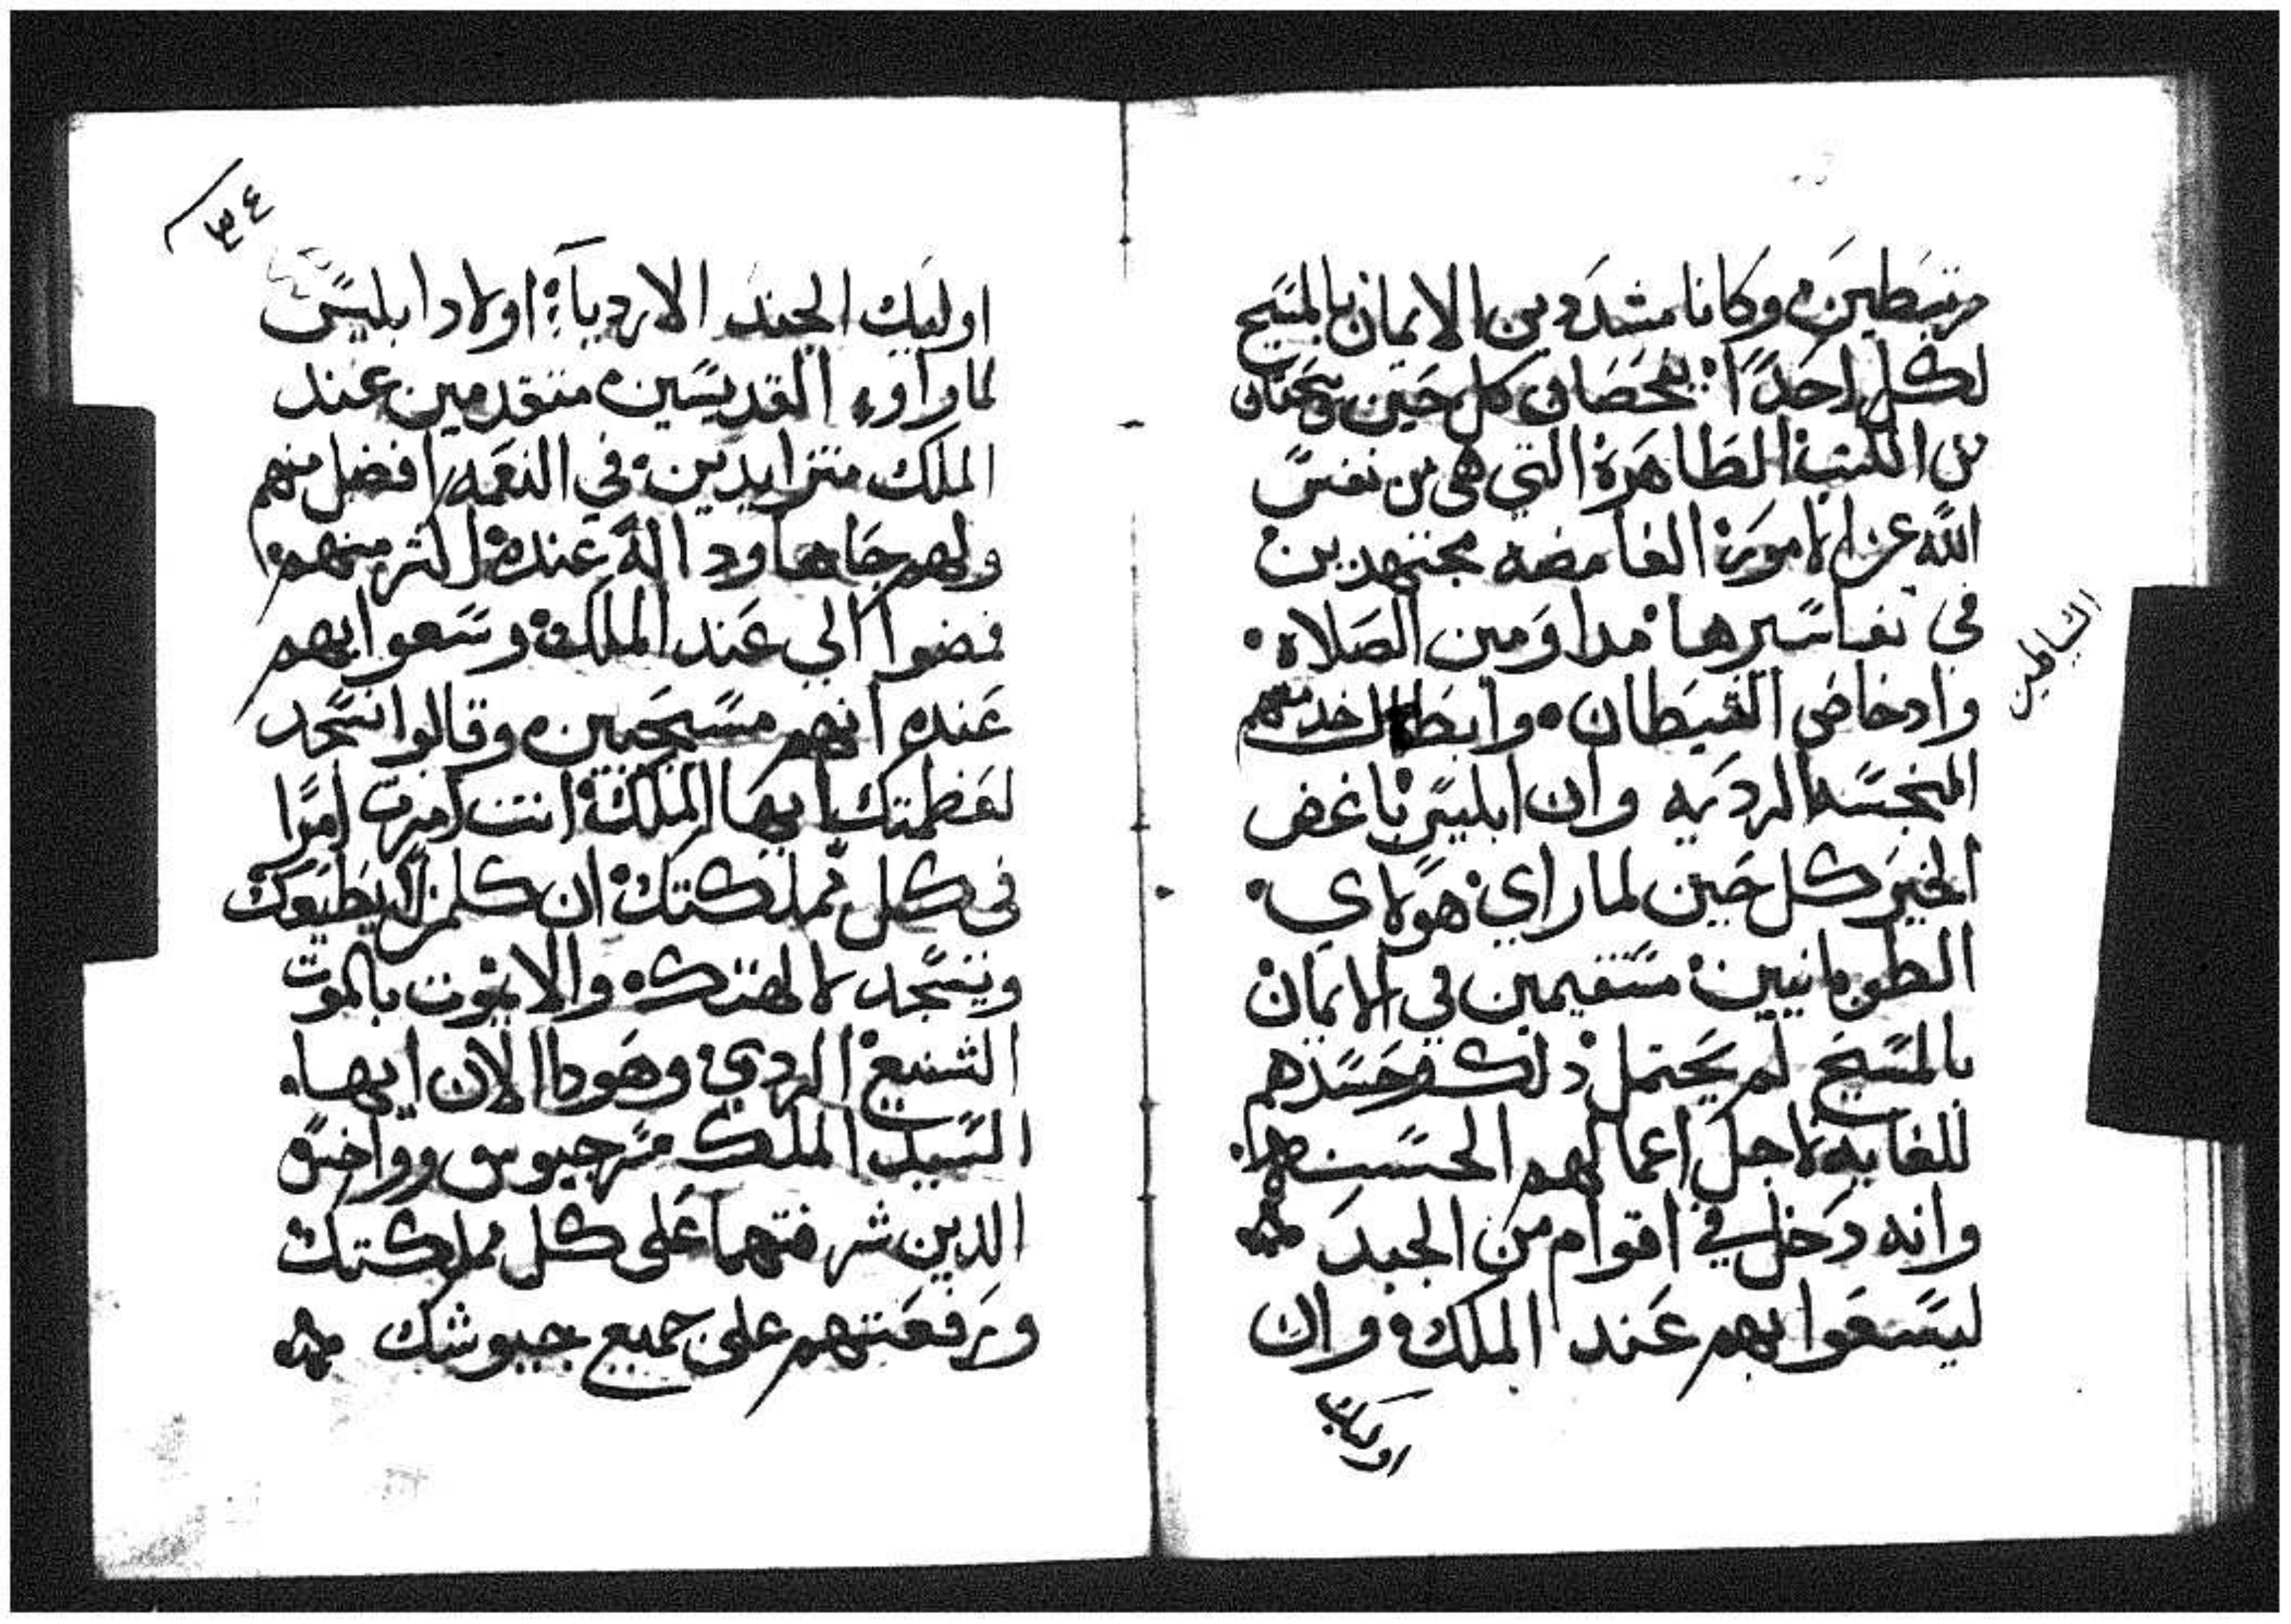 مرتبطين وكانا مشددين الايمان بالمسيح
لكل احدًا يفحصان كل حين ويبحثان
من الكتب الطاهرة التي هي من نفس
الله عن الامور الغامضه مجتهدين
في تفاسيرها مداومين الصلاه
وادحاض الشيطان وابطال خدمتهم
الشياطين
النجسه الرديه وان ابليس باغض
الخير كل حين لما راي هولاي
الطوبانيين مستقيمين في الايمان
بالمسيح لم يحتمل ذلك وحسدهم
للغايه لاجل اعمالهم الحسنه
وانه دخل في اقوام من الجند
ليسعوا بهم عند الملك وان
اوليك
٣٤
اوليك الجند الاردياء اولاد ابليس
لما راوء القديسين متقدمين عند
الملك متزايدين في النعمه افضل منهم
ولهم جاها ودالة عنده اكثر منهم
فمضوا الي عند الملك وسعوا بهم
عنده انهم مسيحيين وقالوا نسجد
لعظمتك ايها الملك انت امرت امرًا
في كل مملكتك ان كلمن لا يطيعك
ويسجد لالهتك والا يموت بالموت
الشنيع الردي وهودا الان ايها
السيد الملك سرجيوس وواخس
الدين شرفتهما على كل مملكتك
ورفعتهم على جميع جيوشك